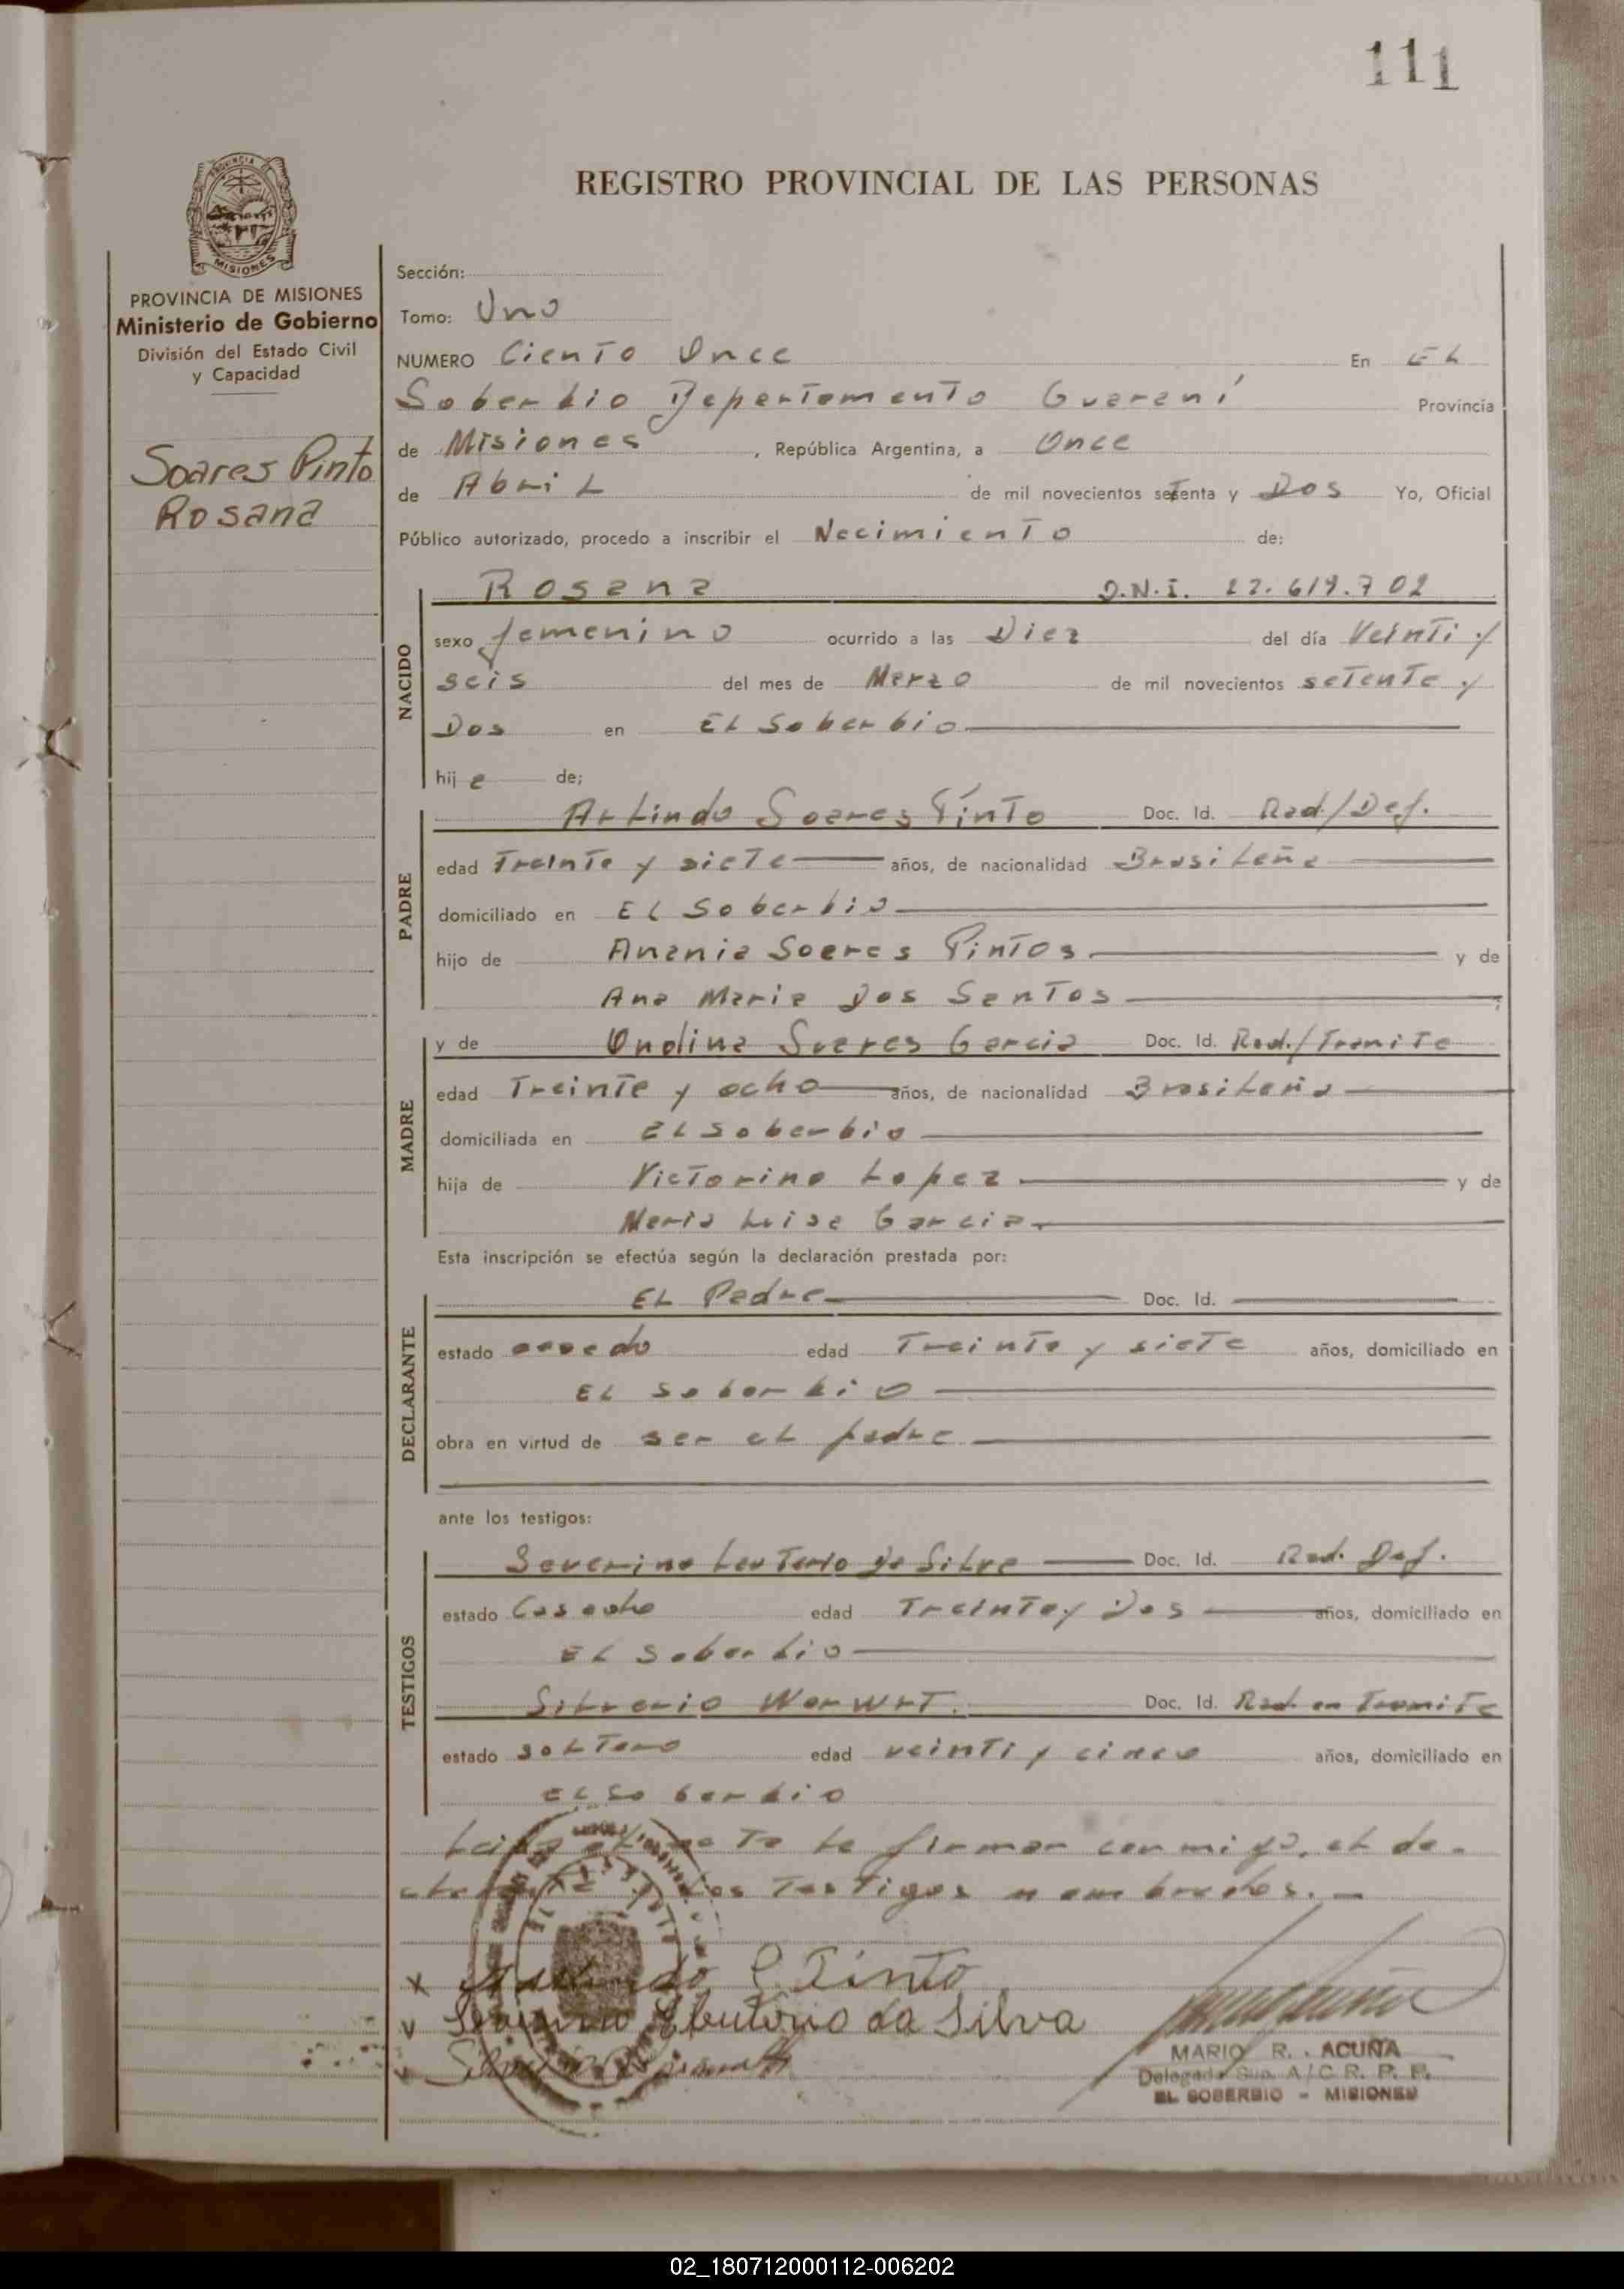 111
PROVINCIA DE
MISIONES
REGISTRO PROVINCIAL DE LAS PERSONAS
PROVINCIA DE MISIONES
Ministerio de Gobierno
División del Estado Civil
y Capacidad
Soares Pinto
Rosana
Sección:
Tomo: Uno
NUMERO Ciento Once En El
Soberbio Departamento Guaraní Provincia
de Misiones, República Argentina, a Once
de Abril de mil novecientos setenta y Dos Yo, Oficial
Público autorizado, procedo a inscribir el Nacimiento de:
NACIDO
Rosana D.N.I. 22.619.702
sexo femenino ocurrido a las Diez del día Veinti y
seis del mes de Marzo de mil novecientos setenta y
Dos en El Soberbio
hija de;
PADRE
Arlindo Soares Pinto Doc. Id. Rad/Def.
edad Treinta y siete años, de nacionalidad Brasileña
domiciliado en El Soberbio
hijo de Anania Soares Pintos y de
Ana Maria Dos Santos
MADRE
y de Ondina Suares Garcia Doc. Id. Rad./Tramite
edad Treinta y ocho años, de nacionalidad Brasileña
domiciliada en El Soberbio
hija de Victorino Lopez y de
Maria Luisa Garcia
Esta inscripción se efectúa según la declaración prestada por:
DECLARANTE
El Padre Doc. Id.
estado casado edad Treinta y siete años, domiciliado en
El Soberbio
obra en virtud de ser el padre
ante los testigos:
TESTIGOS
Severino da Silva Doc. Id. Rad. Def.
estado Casado edad Treinta y Dos años, domiciliado en
El Soberbio
Silverio Doc. Id. Rad. en Tramite
estado soltero edad veinti y cinco años, domiciliado en
El Soberbio
Leida el acta la firman conmigo, el de-
clarante y los Testigos nombrados.
x Arlindo S. Pinto
v Severino Eleutério da Silva
v Silverio
MARIO R. ACUÑA
Delegado Sup. A/C R. P. P.
EL SOBERBIO - MISIONES
02_180712000112-006202